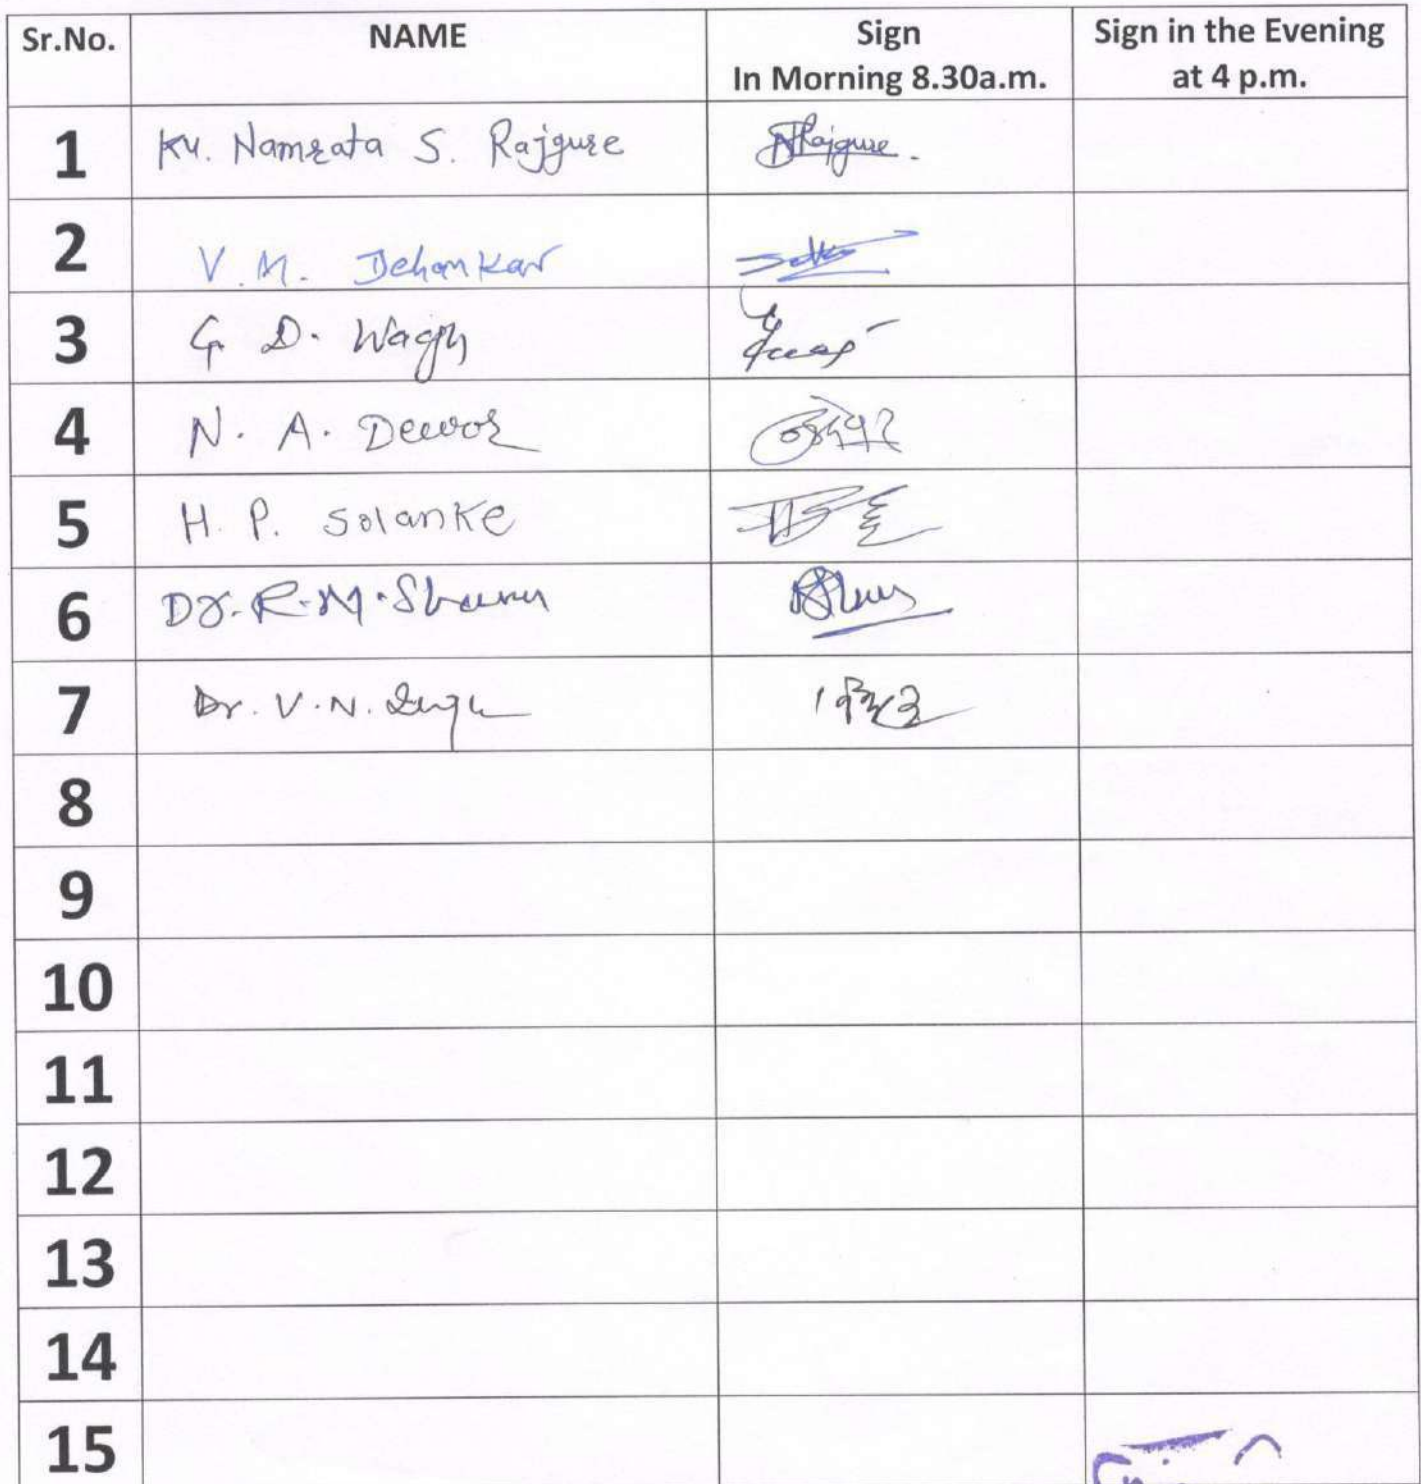 Sr.No. NAME Sign In Morning 8.30a.m. Sign in the Evening at 4 p.m.
1 Ku. Namrata S. Rajgure Rajgure.
2 V. M. Dehankar
3 G. D. Wagh
4 N. A. Dewor
5 H. P. Solanke
6 Dr. R. M. Sharma
7 Dr. V. N.
8
9
10
11
12
13
14
15